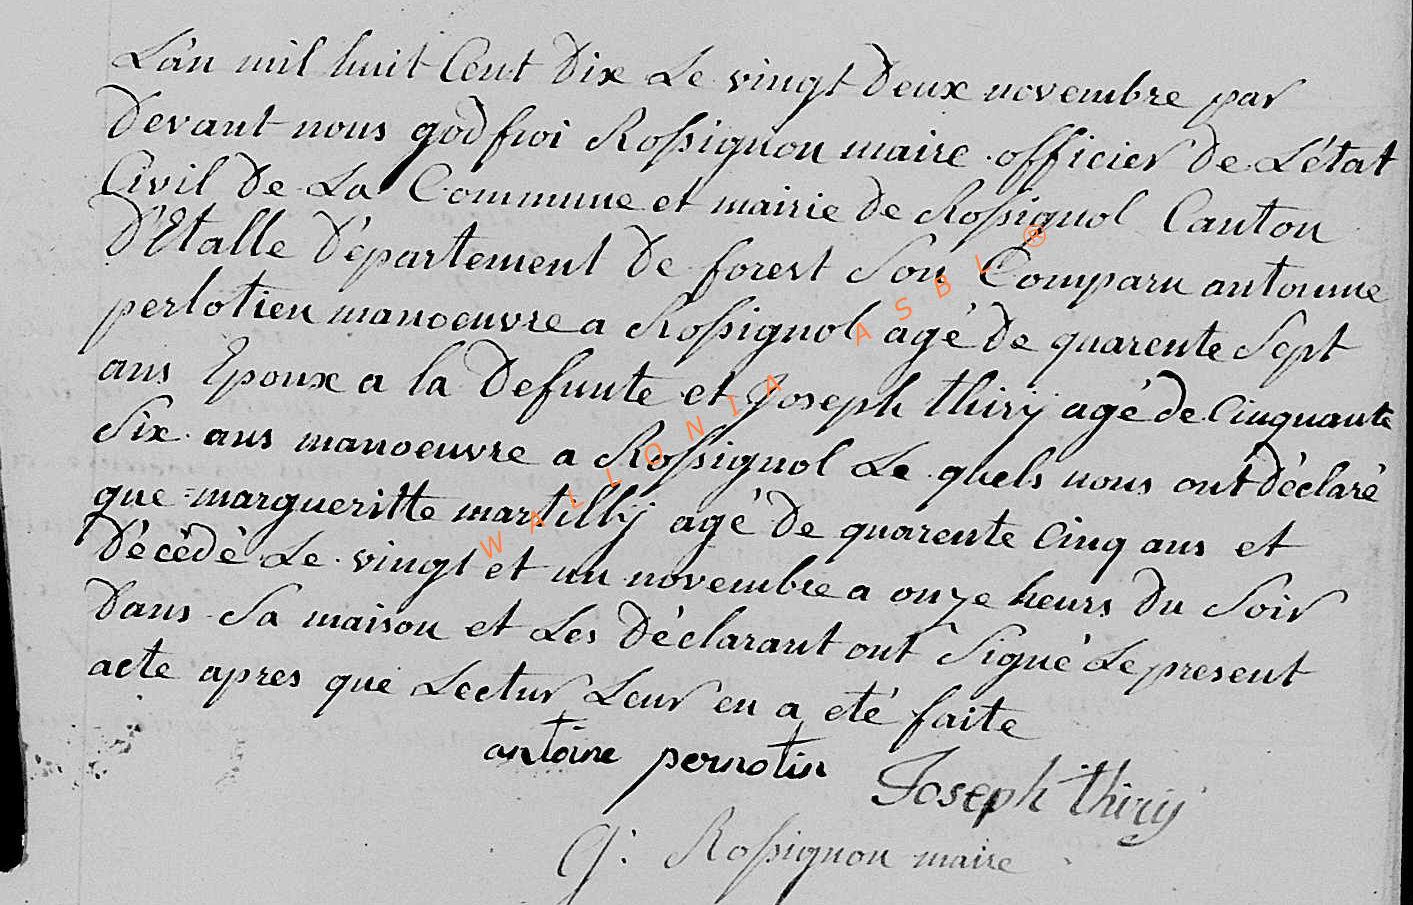 L'an mil huit Cent Dix Le vingt Deux novembre par
Devant nous godfroi Rossignon maire officier de L'état
Civil De La Commune et mairie de Rossignol Canton
D'Etalle Département De forest Son Comparu antoinne
perlotien manoeuvre a Rossignol agé De quarente Sept
ans Epoux a la Defunte et Joseph thiry agé de Cinquante
Six ans manoeuvre a Rossignol Le quels nous ont déclaré
que margueritte martilly agé De quarente Cinq ans et
Décédé Le vingt et un novembre a onze heurs Du Soir
Dans Sa maison et Les Déclarant ont Signé Le present
acte apres que Lectur Leur en a eté faite
antoine pernotin
Joseph thiry
G. Rossignon maire
WALLONIA ASBL ®